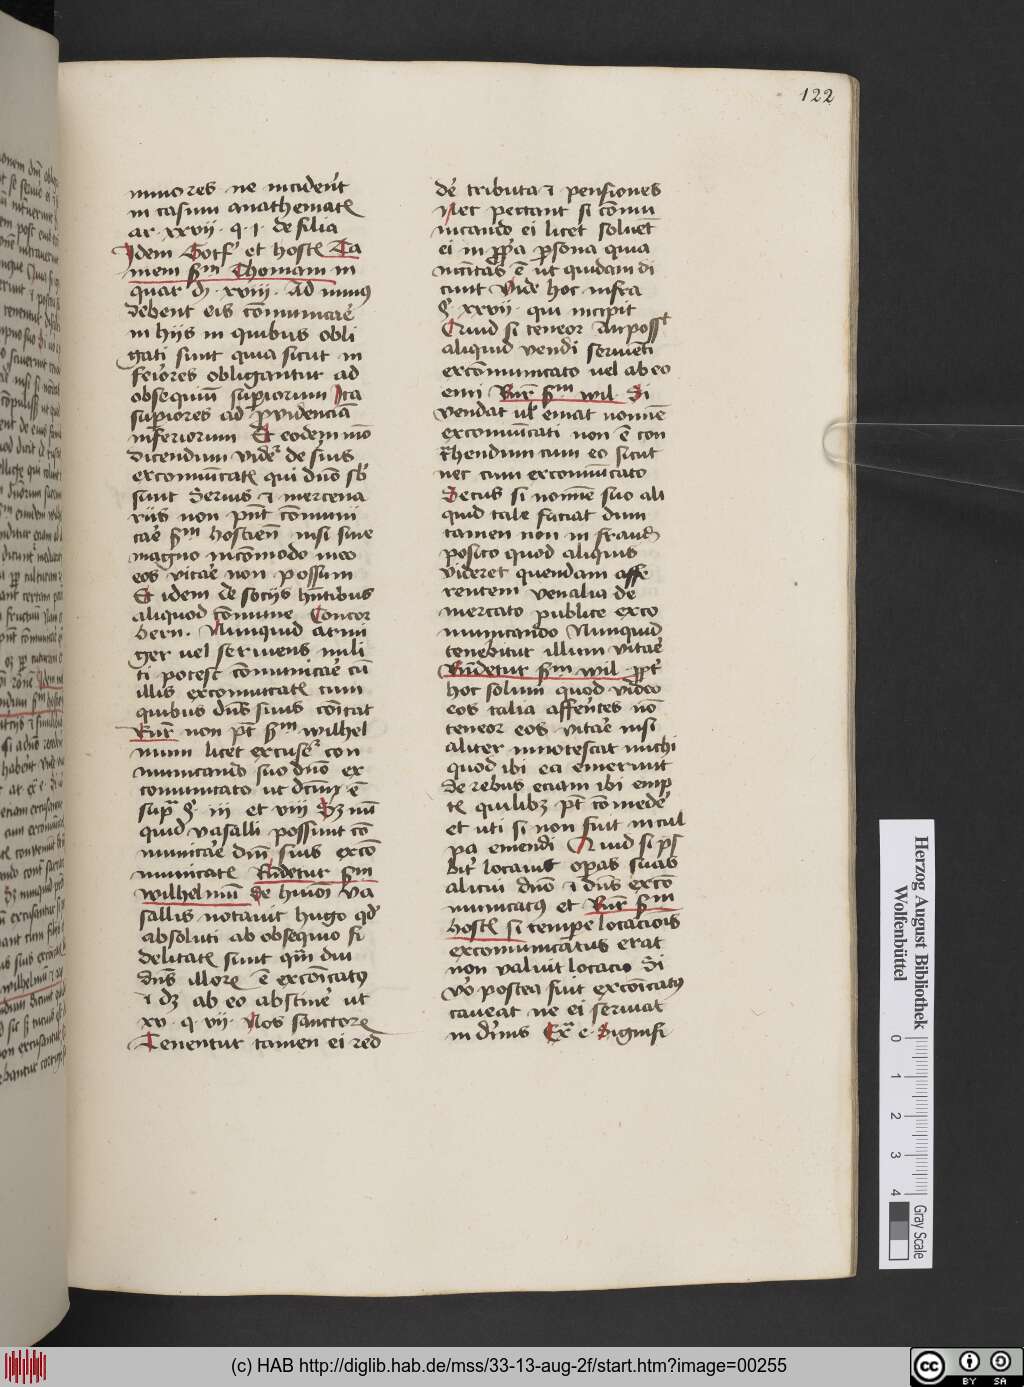 122
minores ne incidert
in casum anathematis
ar. xxvij. q. i. de filia
Idem Gotf' et host' Ta
men sm Thomam in
quar d. xviii. Ad minus
debent eis comunicare
in hijs in quibus obli
gati sunt quia sicut in
feriores obligantur ad
obsequium superiorum Ita
superiores ad providenciam
inferiorum Et eodem modo
dicendum videtur de suis
excommunicatis qui domino sb
sunt Servis et mercena
riis non possunt communi
care sm hostiensem nisi sine
magno incomodo meo
eos vitare non possum
Et idem de socijs habentibus
aliquod comune Concor
bern. Nunquid armi
ger vel serviens mili
ti potest comunicare cum
illis excomunicatis cum
quibus dominus suus comunicat
Rur non potest sm wilhel
mum licet excusetur con
municando suo domino ex
comunicato ut dictum est
supra §. iii et viii Sed nun
quid vasalli possunt com
municare dominum suis exco
municatis Rundetur sm
wilhelmum de huiusmodi va
sallis notavit hugo quod
absoluti ab obsequio fi
delitatis sunt quamdiu
dominus illorum est excomunicatus
et debet ab eo abstinere ut
xv. q. vii. Nos sanctorum
Tenentur tamen ei red
dere tributa et pensiones
Nec peccant si comu
nicando ei licet solvent
ei in propria persona quia
necessitas est ut quidam di
cunt Vide hoc infra
§. xxvii. qui incipit
Quid si teneor An possit
aliquid vendi servienti
excommunicato vel ab eo
emi Rur sm wil. Si
vendat vel emat nomine
excommunicati non est con
trahendum cum eo sicut
nec cum excomunicato
Secus si nomine suo ali
quid tale faciat dum
tamen non in fraudem
posito quod aliquis
videret quendam affe
rentem venalia de
mercato publice exco
municando Nunquid
tenebitur illum vitare
Rundetur sm wil propter
hoc solum quod video
eos talia afferentes non
teneor eos vitare nisi
aliter innotescat michi
quod ibi ea emerunt
de rebus eciam ibi emp
tis quilibet potest comedere
et uti si non fuit in cul
pa emendi Quid si ps
biter locavit operas suas
alicui domino et dominus exco
municatus et Rur sm
host' si tempore locacionis
excomunicatus erat
non valuit locacio Si
vero postea fuit excomunicatus
caveat ne ei serviat
in divinis Ex e. Signifi
Herzog August Bibliothek
Wolfenbüttel
0 1 2 3 4
Gray Scale
(c) HAB http://diglib.hab.de/mss/33-13-aug-2f/start.htm?image=00255
cc BY SA